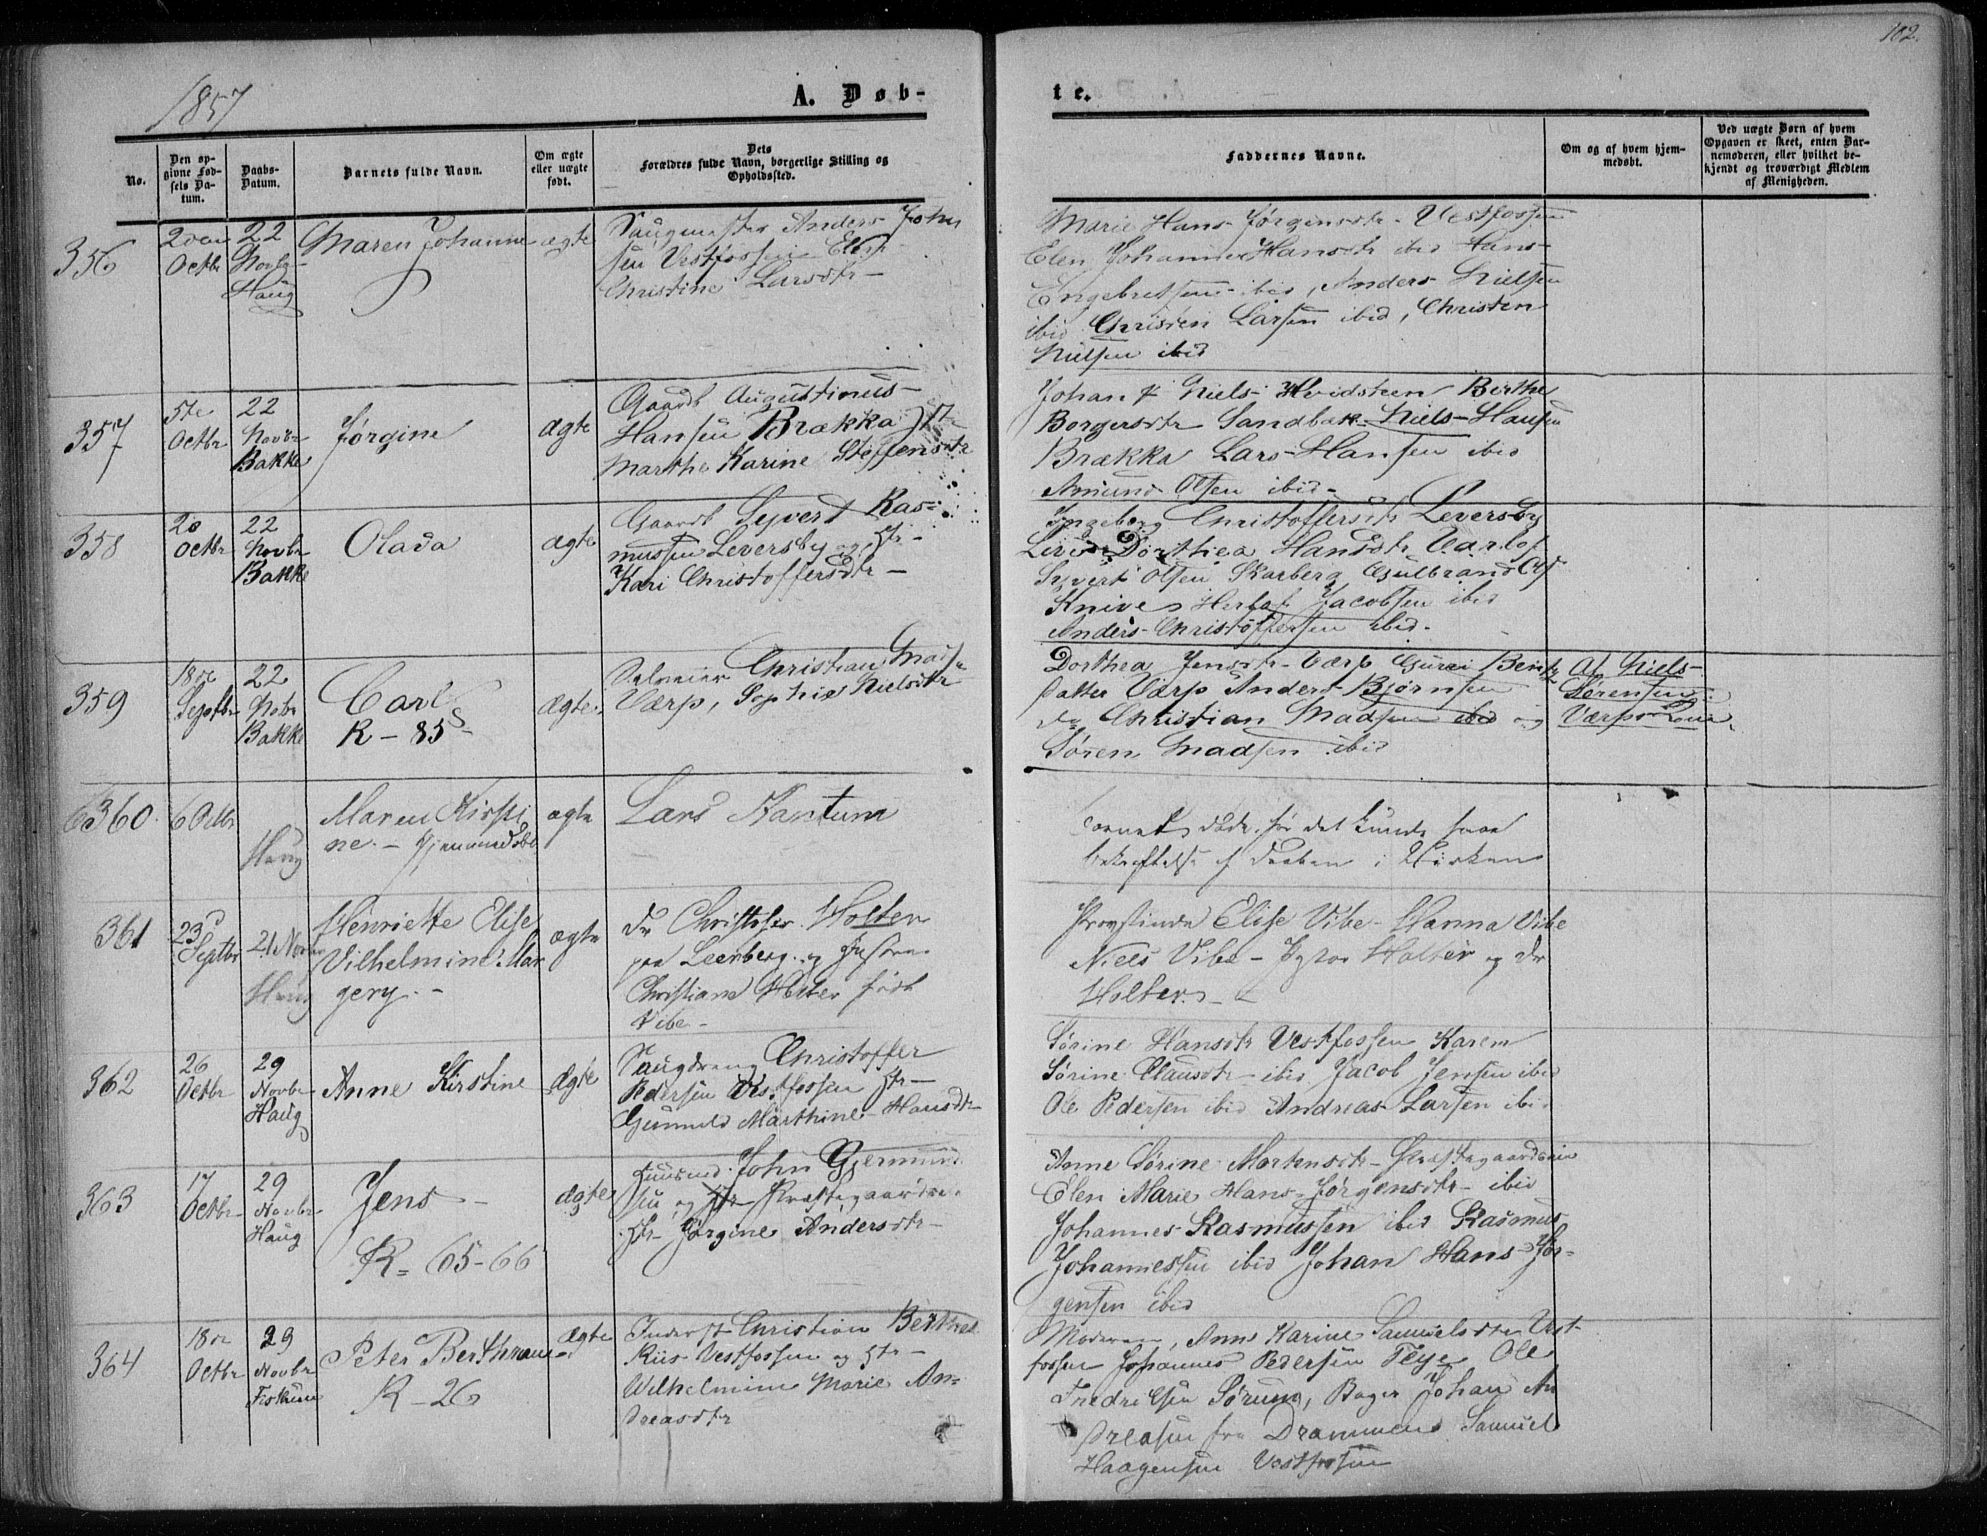 102.
1857
A. Døb-
te.
No.
Den op-
givne Fød-
sels Da-
tum.
Daabs-
Datum.
Barnets fulde Navn.
Om ægte
eller uægte
født.
Dets
Forældres fulde Navn, borgerlige Stilling og
Opholdssted.
Faddernes Navne.
Om og af hvem hjem-
medøbt.
Ved uægte Børn af hvem
Opgaven er skeet, enten Bar-
nemoderen, eller hvilket be-
kjendt og troværdigt Medlem
af Menigheden.
356
Octbr
22
Novbr
Haug
Maren Johanne
ægte
Anders John
sen Vestfossen
Christine Larsdtr
Marie Hans Jørgensdtr Vestfossen
Elen Johanne Hansdtr ibid Hans
Engebretsen ibid, Anders Nielsen
ibid Christen Larsen ibid, Christen
Nielsen ibid
357
5te
Octbr
22
Novbr
Bakke
Jørgine
ægte
Gaardb Augustinus
Hansen Brækka
Marthe Karine Steffensdtr
Johan Niels Hvidsteen Birthe
Borgersdtr Sandbak Niels Hansen
Brækka Lars Hansen ibid
Amund Olsen ibid
358
20
Octbr
22
Novbr
Bakke
Olava
ægte
Gaardb Syvert Ras-
mussen Leversby og Hstr
Kari Christoffersdtr
Ingeborg Christoffersdtr Leversby
Dorthea Hansdtr Varlo
Syvert Olsen Skarberg Gulbrand
Knive Jacobsen ibid
Anders Christoffersen ibid
359
18de
Septbr
22
Nobr
Bakke
Carl
R - 85
ægte
Christian Mads
Værp, Sophie Nielsdtr
Dorthea Jensdtr Værp Guri Bents
datter Værp Anders Bjørnsen
do Christian Madsen ibid og
Søren Madsen ibid
Af Niels
Sørensen
Værp
360
6 Octbr
Haug
Maren Kirsti
ne. - Hjemmedøbt
ægte
Lars Kantum
Barnet døde før det kunde faae
bekræftelse af Daaben i Kirken
361
23d
Septbr
21 Novbr
Haug
Henriette Elise
Vilhelmine Mar
gery. -
ægte
Dr Christopher Holter
paa Leerberg og Hustrue
Christiane Holter født
Vibe -
Provstinde Elise Vibe - Hanna Vibe
Niels Vibe - Holter og Dr
Holter. -
362
26
Octbr
29
Novbr
Haug
Anne Kirstine
ægte
Saugdreng Christoffer
Pedersen Vestfossen Hstr
Gunnild Marthine Hansdtr
Sørine Hansdtr Vestfossen Karen
Sørine Clausdtr ibid Jacob Jensen ibid
Ole Pedersen ibid Andreas Larsen ibid
363
17
Octbr
29
Novbr
Haug
Jens
R - 65-66
ægte
Huusmd John Gjermund
sen og Hstr Præstegaardseie
Hstr Jørgine Andersdtr
Anne Sørine Mortensdtr Præstegaardseie
Elen Marie Hans Jørgensdtr ibid
Johannes Rasmussen ibid Rasmus
Johannessen ibid Johan Hans Jør-
gensen ibid
364
18de
Octbr
29
Novbr
Fiskum
Peter Berthram
R - 26
ægte
Inderst Christian Berthel
Riis Vestfossen og Hstr
Wilhelmine Marie An-
dreasdtr
Moderen, Anne Karine Samuelsdtr Vest-
fossen Johannes Pedersen Teye Ole
Fredriksen Sørum, Bager Johan An
dreasen fra Drammen Samuel
Haagensen Vestfossen